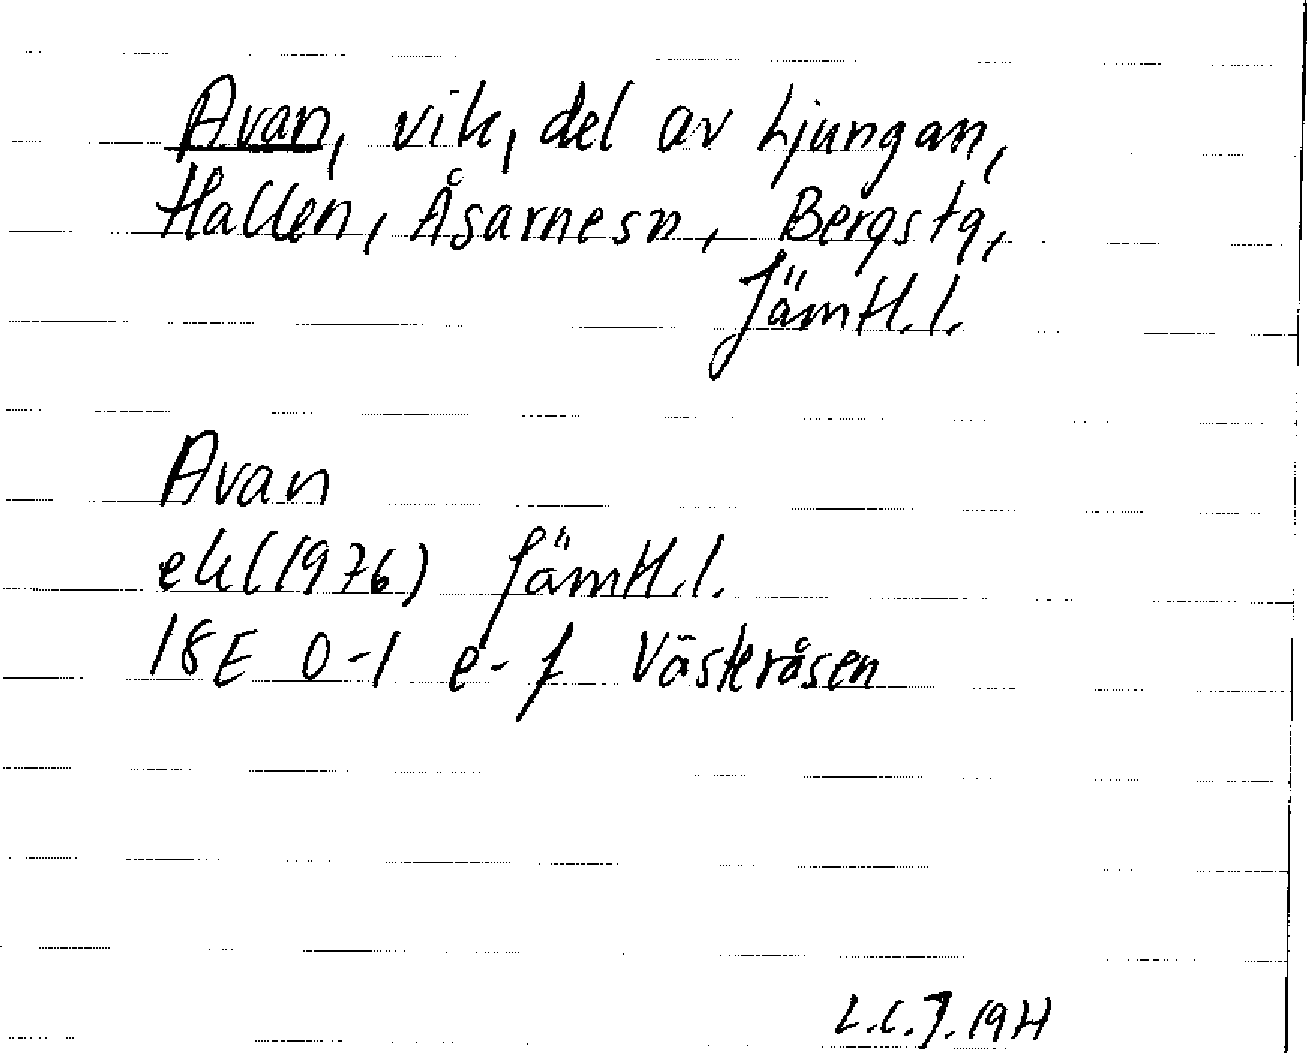 Avan, vik, del av Ljungan,
Hallen, Åsarnesn, Bergstg,
Jämtl.l.
Avan
ek(1976) Jämtl.l.
18E 0-1 e-f Västeråsen